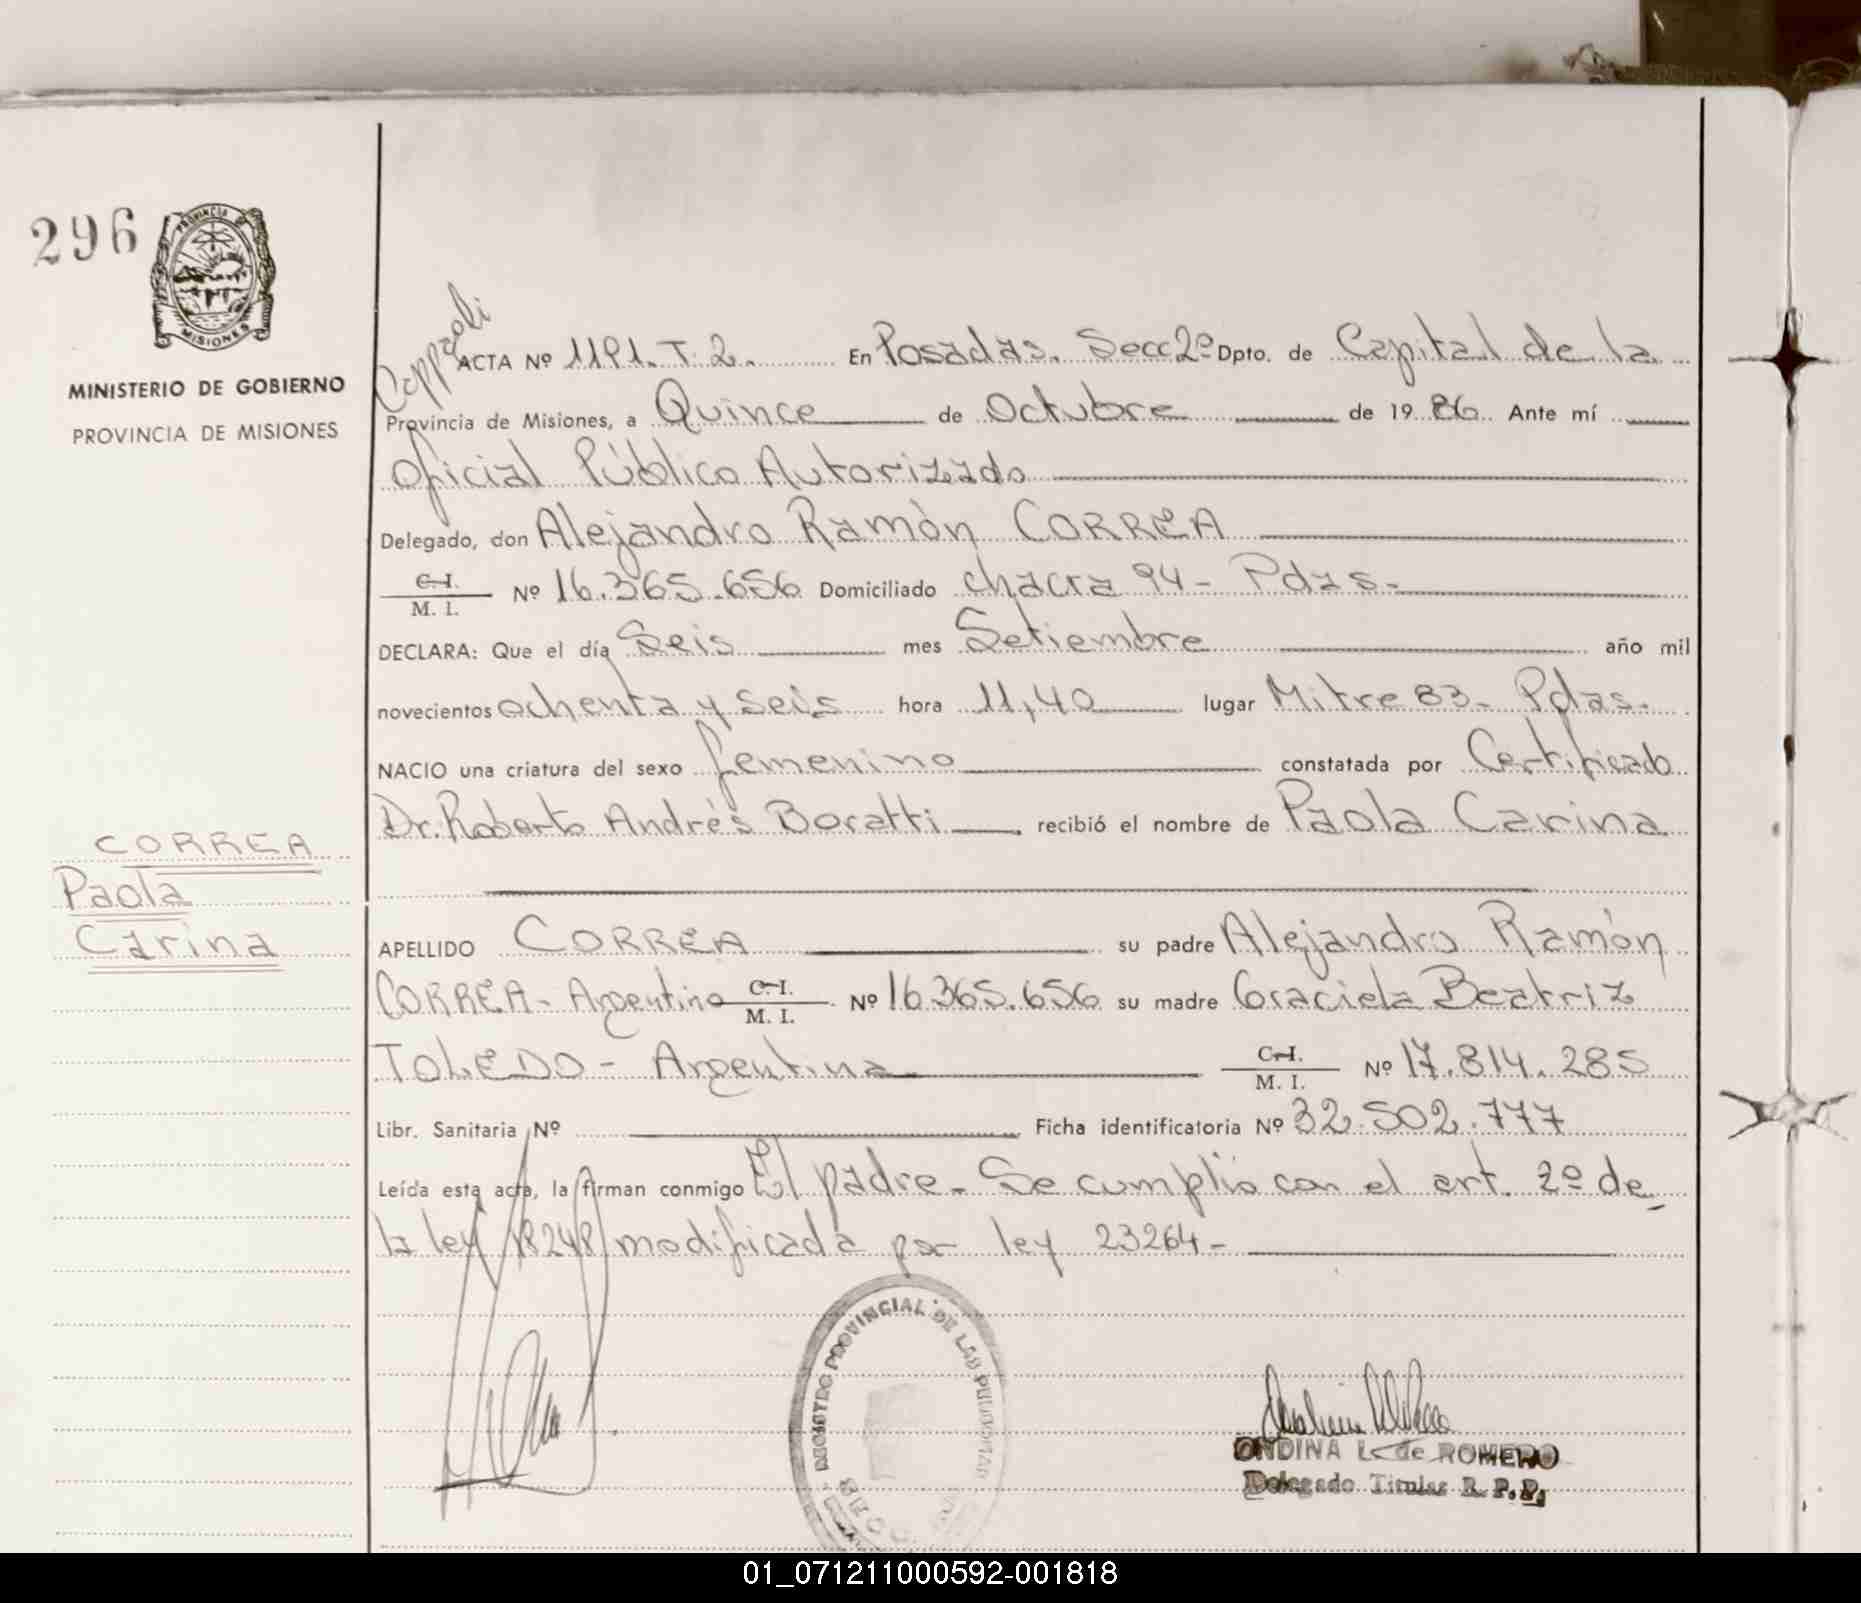 296
PROVINCIA DE
MISIONES
MINISTERIO DE GOBIERNO
PROVINCIA DE MISIONES
CORREA
Paola
Carina
ACTA Nº 1191. T. 2. En Posadas. Secc 2º Dpto. de Capital de la
Provincia de Misiones, a Quince de Octubre de 1986 Ante mí
Oficial Público Autorizado
Delegado, don Alejandro Ramón CORREA
C.I. / M. I. Nº 16.365.656 Domiciliado chacra 94 - Pdas.
DECLARA: Que el día Seis mes Setiembre año mil
novecientos ochenta y seis hora 11,40 lugar Mitre 83 - Pdas.
NACIO una criatura del sexo femenino constatada por Certificado
Dr. Roberto Andrés Boratti recibió el nombre de Paola Carina
APELLIDO CORREA su padre Alejandro Ramón
CORREA - Argentino C.I. / M. I. Nº 16.365.656 su madre Graciela Beatriz
TOLEDO - Argentina C.I. / M. I. Nº 17.814.285
Libr. Sanitaria Nº Ficha identificatoria Nº 32.502.777
Leída esta acta, la firman conmigo El padre - Se cumplió con el art. 2º de
la ley 18248 modificada por ley 23264 -
REGISTRO PROVINCIAL DE LAS PERSONAS
ONDINA L. de ROMERO
Delegado Titular R. P. P.
01_071211000592-001818